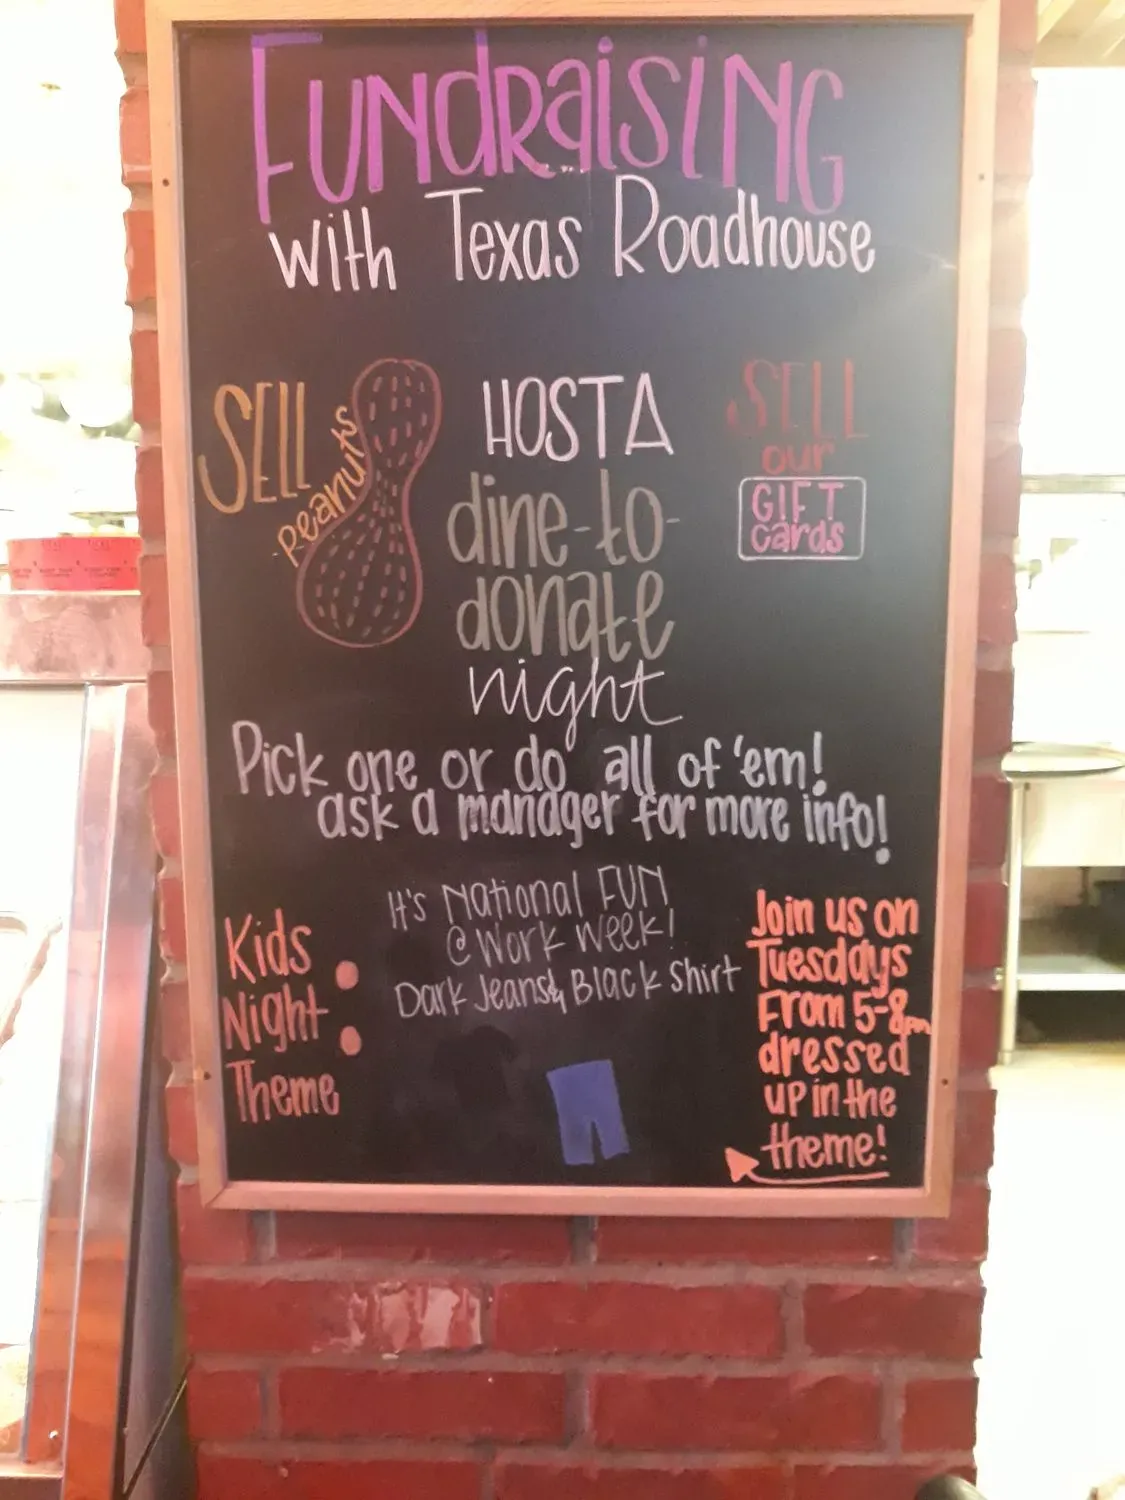 Fundraising
with Texas Roadhouse
SELL
peanuts
HOST A
dine-to-
donate
night
SELL
our
GIFT
cards
Pick one or do all of 'em!
ask a manager for more info!
Kids
Night
Theme
:
It's National FUN
@ Work Week!
Dark Jeans & Black Shirt
Join us on
Tuesdays
From 5-8pm
dressed
up in the
theme!